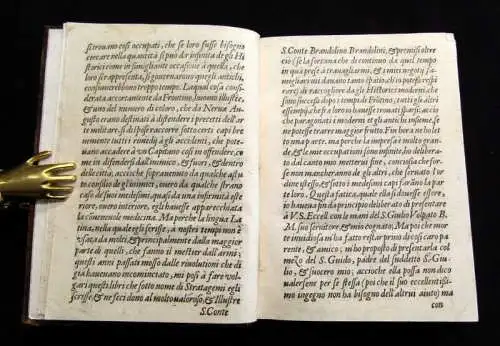 si trovano così occupati, che se loro fusse bisogno
ricercare la verità per un' infinita de gli Hi
storici come in simigliante occasione à quella, che
loro si rappresenta, si gouernarono quegli antichi,
consumerebbono troppo tempo. La qual cosa consi
derata accortamente da Frontino, huomo illustre, e
uno del numero di coloro, che da Nerua Au
gusto erano destinati à difendere i precetti dell' ar
te militare. si dispose raccorre sotto certi capi bre
uemente tutti i rimedij à gli accidenti, che pote
uano accadere à un Capitano così in offendere, co
me in difendersi dall' inimico, & fuori, & dentro
delle città, accioche soprauenuto da qualche astu
to consilio de gl' inimici, ouero da qualche strano
caso di suoi medesimi, qual sia una infirmità este
riore, ouero interiore, egli hauesse apparecchiata
la conueneuole medicina. Ma perche la lingua La
tina, nella quale egli scrisse, a nostri tempi non è
usata da molti, & principalmente dalla maggior
parte di quelli, che fanno il mestier dell' armi;
questi anni passati mosso dalle riuolutioni che di
già haueuano incominciato, mi posi à fare volgari
questi libri che sotto nome di Stratagemi egli
scrisse, & ne feci dono al molto valoroso, & Illustre
S. Conte
S. Conte Brandolino Brandolini, & promisi oltre
ciò (se la fortuna che di continuo da quel tempo
in qua à trauagliarmi, & à miei negotij fa
miliari mi hauesse dato tanto spatio di ope
rarle) di raccogliere da gle Historici moderni, che
sono successi dopo i tempi di Frontino, tutti gli altri
essempij, che in essi si trouano notati sparsi; accio
che paragonati i moderni et gli antichi insieme, se
ne potesse trarre maggior frutto. Fin hora ne ho let
to una parte, ma perche la impresa è molto gran-
de, & le mie occupationi sono infinite, ho deliberato
dal canto mio metterui fine, conciosia che for-
se non mancheranno de gli altri, che seruato l' or
dine istesso, & sotto i medesimi capi faranno la par
te loro. Questa fatica, quale ella si douesse essere,
io haueua fin da principio deliberato di presentare
à V. S. Eccell. con le mani del S. Giulio Volpato B.
M. suo seruitore, & mio cognato; Ma poi che mor
te inuidiosa mi ha fatto restar priuo di così caro pa
rente, & amico; mi ho proposto di presentarla col
mezo del S. Guido, padre del suddetto S. Giu-
lio, & suocero mio; accioche ella possa non dico
ualersene per se stessa (poi che il suo eccellentissi
mo ingegno non ha bisogno dell' altrui aiuto) ma
con